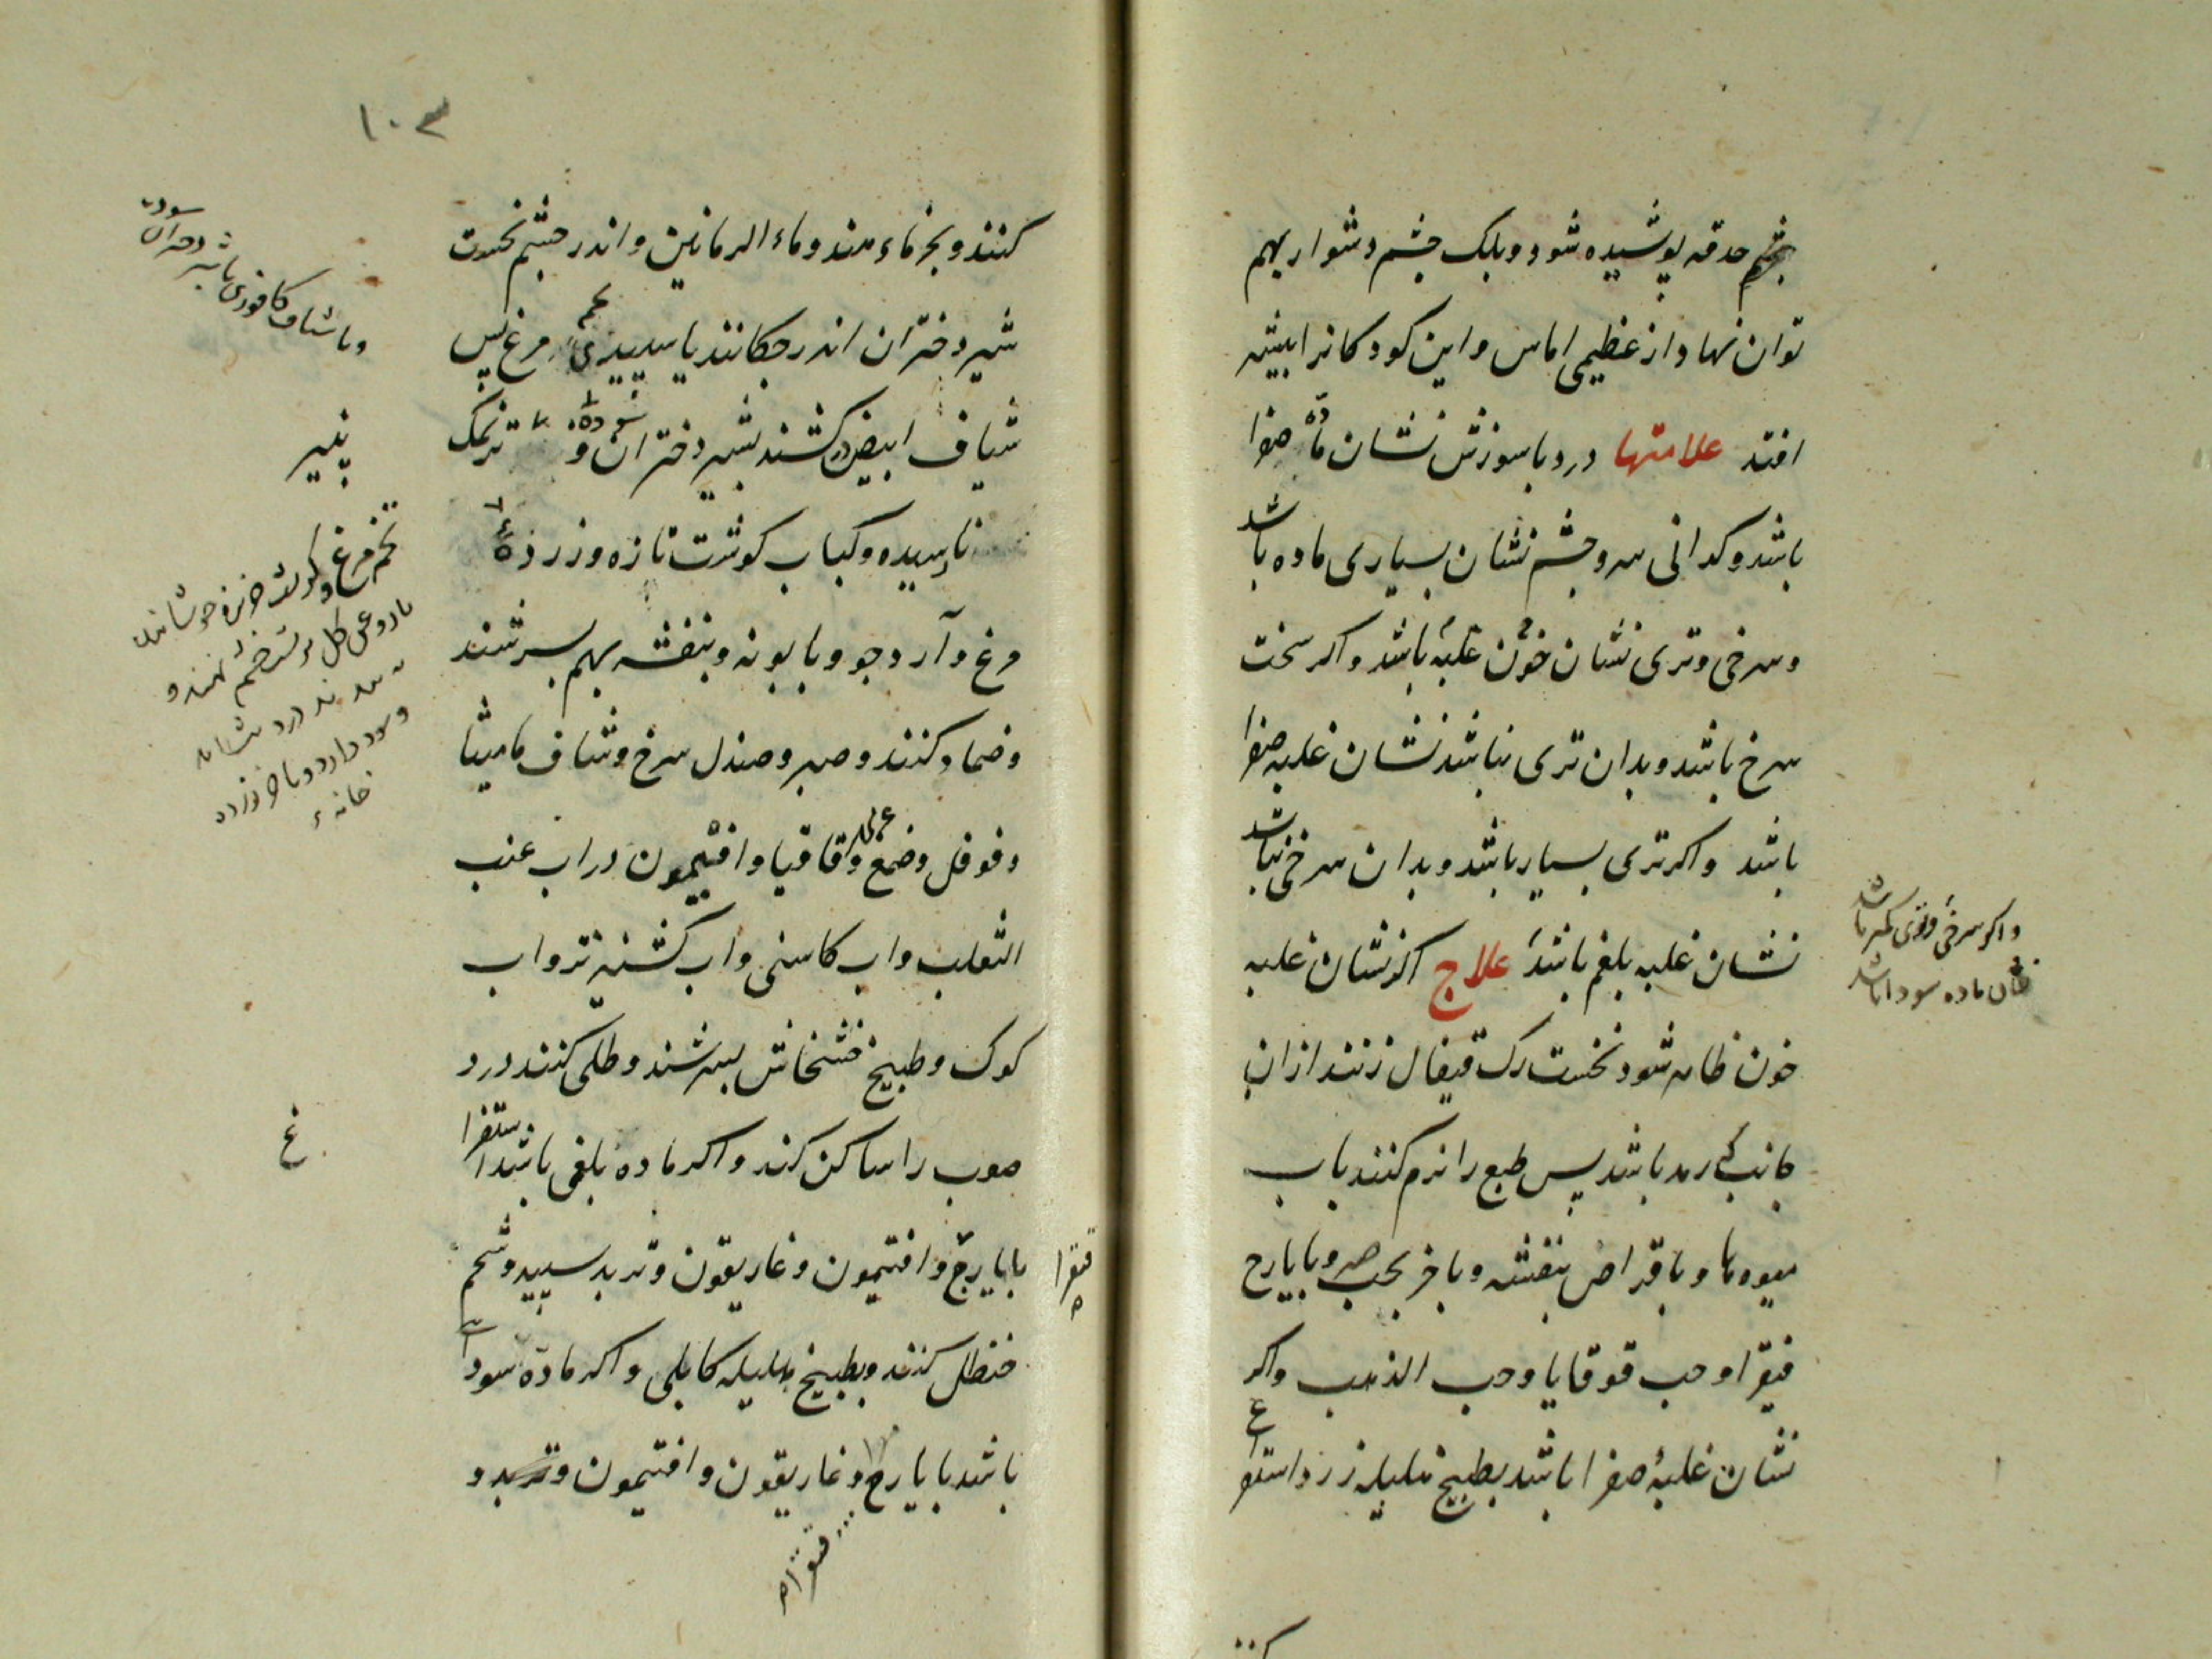 چشم حدقه پوشیده شود و پلک چشم دشوار بهم
توان نهاد از عظیمی اماس و این کودکانرا بیشتر
افتد علامتها درد با سوزش نشان مادّه صفرا
باشد و کدانی سر و چشم نشان بسیاری ماده باشد
و سرخی و تری نشان خون غلبهٔ باشد و اکر سخت
سرخ باشد و بدان تری نباشد نشان غلبه صفرا
باشد و اکر تری بسیار باشد و بدان سرخی نباشد
نشان غلبه بلغم باشد علاج اکر نشان غلبه
خون ظاهر شود نخست رک قیفال زنند از ان
جانب کی رمد باشد پس طبع را نرم کنند باب
میوه‌ها و باقراص بنفشه و باخر بحب صبر و بایارج
فیقرا و حب قوقایا و حب الذهب واکر
نشان غلبهٔ صفرا باشد بطبیخ هلیله زرد استفراغ
واکر سرخی و تری کمتر باشد
نشان ماده سودا باشد
کنند
۱۰۳
کنند و بخرماء هندو و ماء الرمانین و اندر چشم نخست
شیر دختران اندر چکانند یا سپیدیٔ تخم مرغ پس
شیاف ابیض در کشند بشیر دختران سوده و پنیر تر نمک
نارسیده و کباب کوشت تازه و زردهٔ
مرغ و آرد جو و بابونه و بنفشه بهم بسرشند
و ضماد کنند و صبر و صندل سرخ و شیاف مامیثا
و فوفل و صمغ عربی و قاقیا و افتیمون در اب عنب
الثعلب و اب کاسنی و اب کشنیز تر و اب
کوک و طبیخ خشخاش بسرشند و طلی کنند درد
صعب را ساکن کند و اکر ماده بلغمی باشد استفراغ
بایارج فیقرا و افتیمون و غاریقون و تربد سپید و شحم
حنظل کنند و بطبیخ هلیله کابلی و اکر مادّه سودایی
باشد بایارج فیقرا و غاریقون و افتیمون و تربد و
و یا شیاف کافوری با شیر دختران سوده
پنیر
تخم مرغ
غ